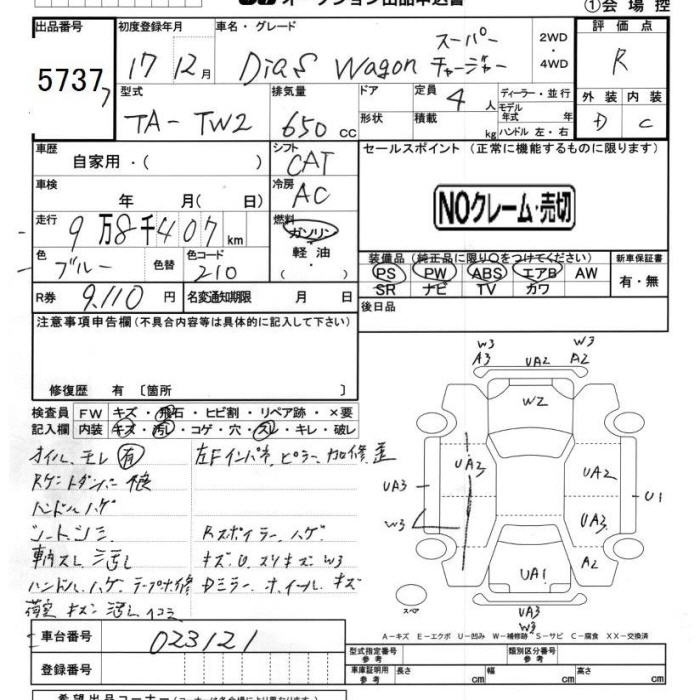 オークション出品申込書
①会場控
出品番号 初度登録年月 車名・グレード 評価点
5737 17 12月 Dias Wagon スーパーチャージャー 2WD・4WD R
型式 排気量 ドア 定員 ディーラー・並行 外装 内装
TA-TW2 650cc 4人 モデル年式 年式 D C
形状 積載 kg ハンドル 左・右
車歴 シフト セールスポイント (正常に機能するものに限ります)
自家用・( ) CAT
車検 冷房
年 月( 日) AC NOクレーム・売切
走行 燃料
9万8千407km ガソリン
軽油
色 色替 色コード 装備品(純正品に限り○をつけてください) 新車保証書
ブルー 210 PS PW ABS エアB AW 有・無
SR ナビ TV カワ
R券 9,110円 名変通知期限 月 日 後日品
注意事項申告欄(不具合内容等は具体的に記入して下さい)
修復歴 有 〔箇所 〕
検査員 FW キズ・飛石・ヒビ割・リペア跡・×要
記入欄 内装 キズ・汚レ・コゲ・穴・スレ・キレ・破レ
オイルモレ 有 左Fインパネ、ピラー、加修、歪
ハンドルハゲ
シートシミ Rスポイラーハゲ
車内スレ、汚レ キズ、U、スリキズ W3
ハンドル、ハゲ テープ補修 Dミラー、ホイール、キズ
W3 A3 UA2 W3 A2
W2
UA3 UA2
UA3 U1
W3 UA3
A2
UA1
スペア
UA3
W3
A-キズ E-エクボ U-凹み W-補修跡 S-サビ C-腐食 XX-交換済
車台番号 023121
型式指定番号 参考 類別区分番号 参考
登録番号 車庫証明用 参考 長さ cm 幅 cm 高さ cm
希望出品コーナー